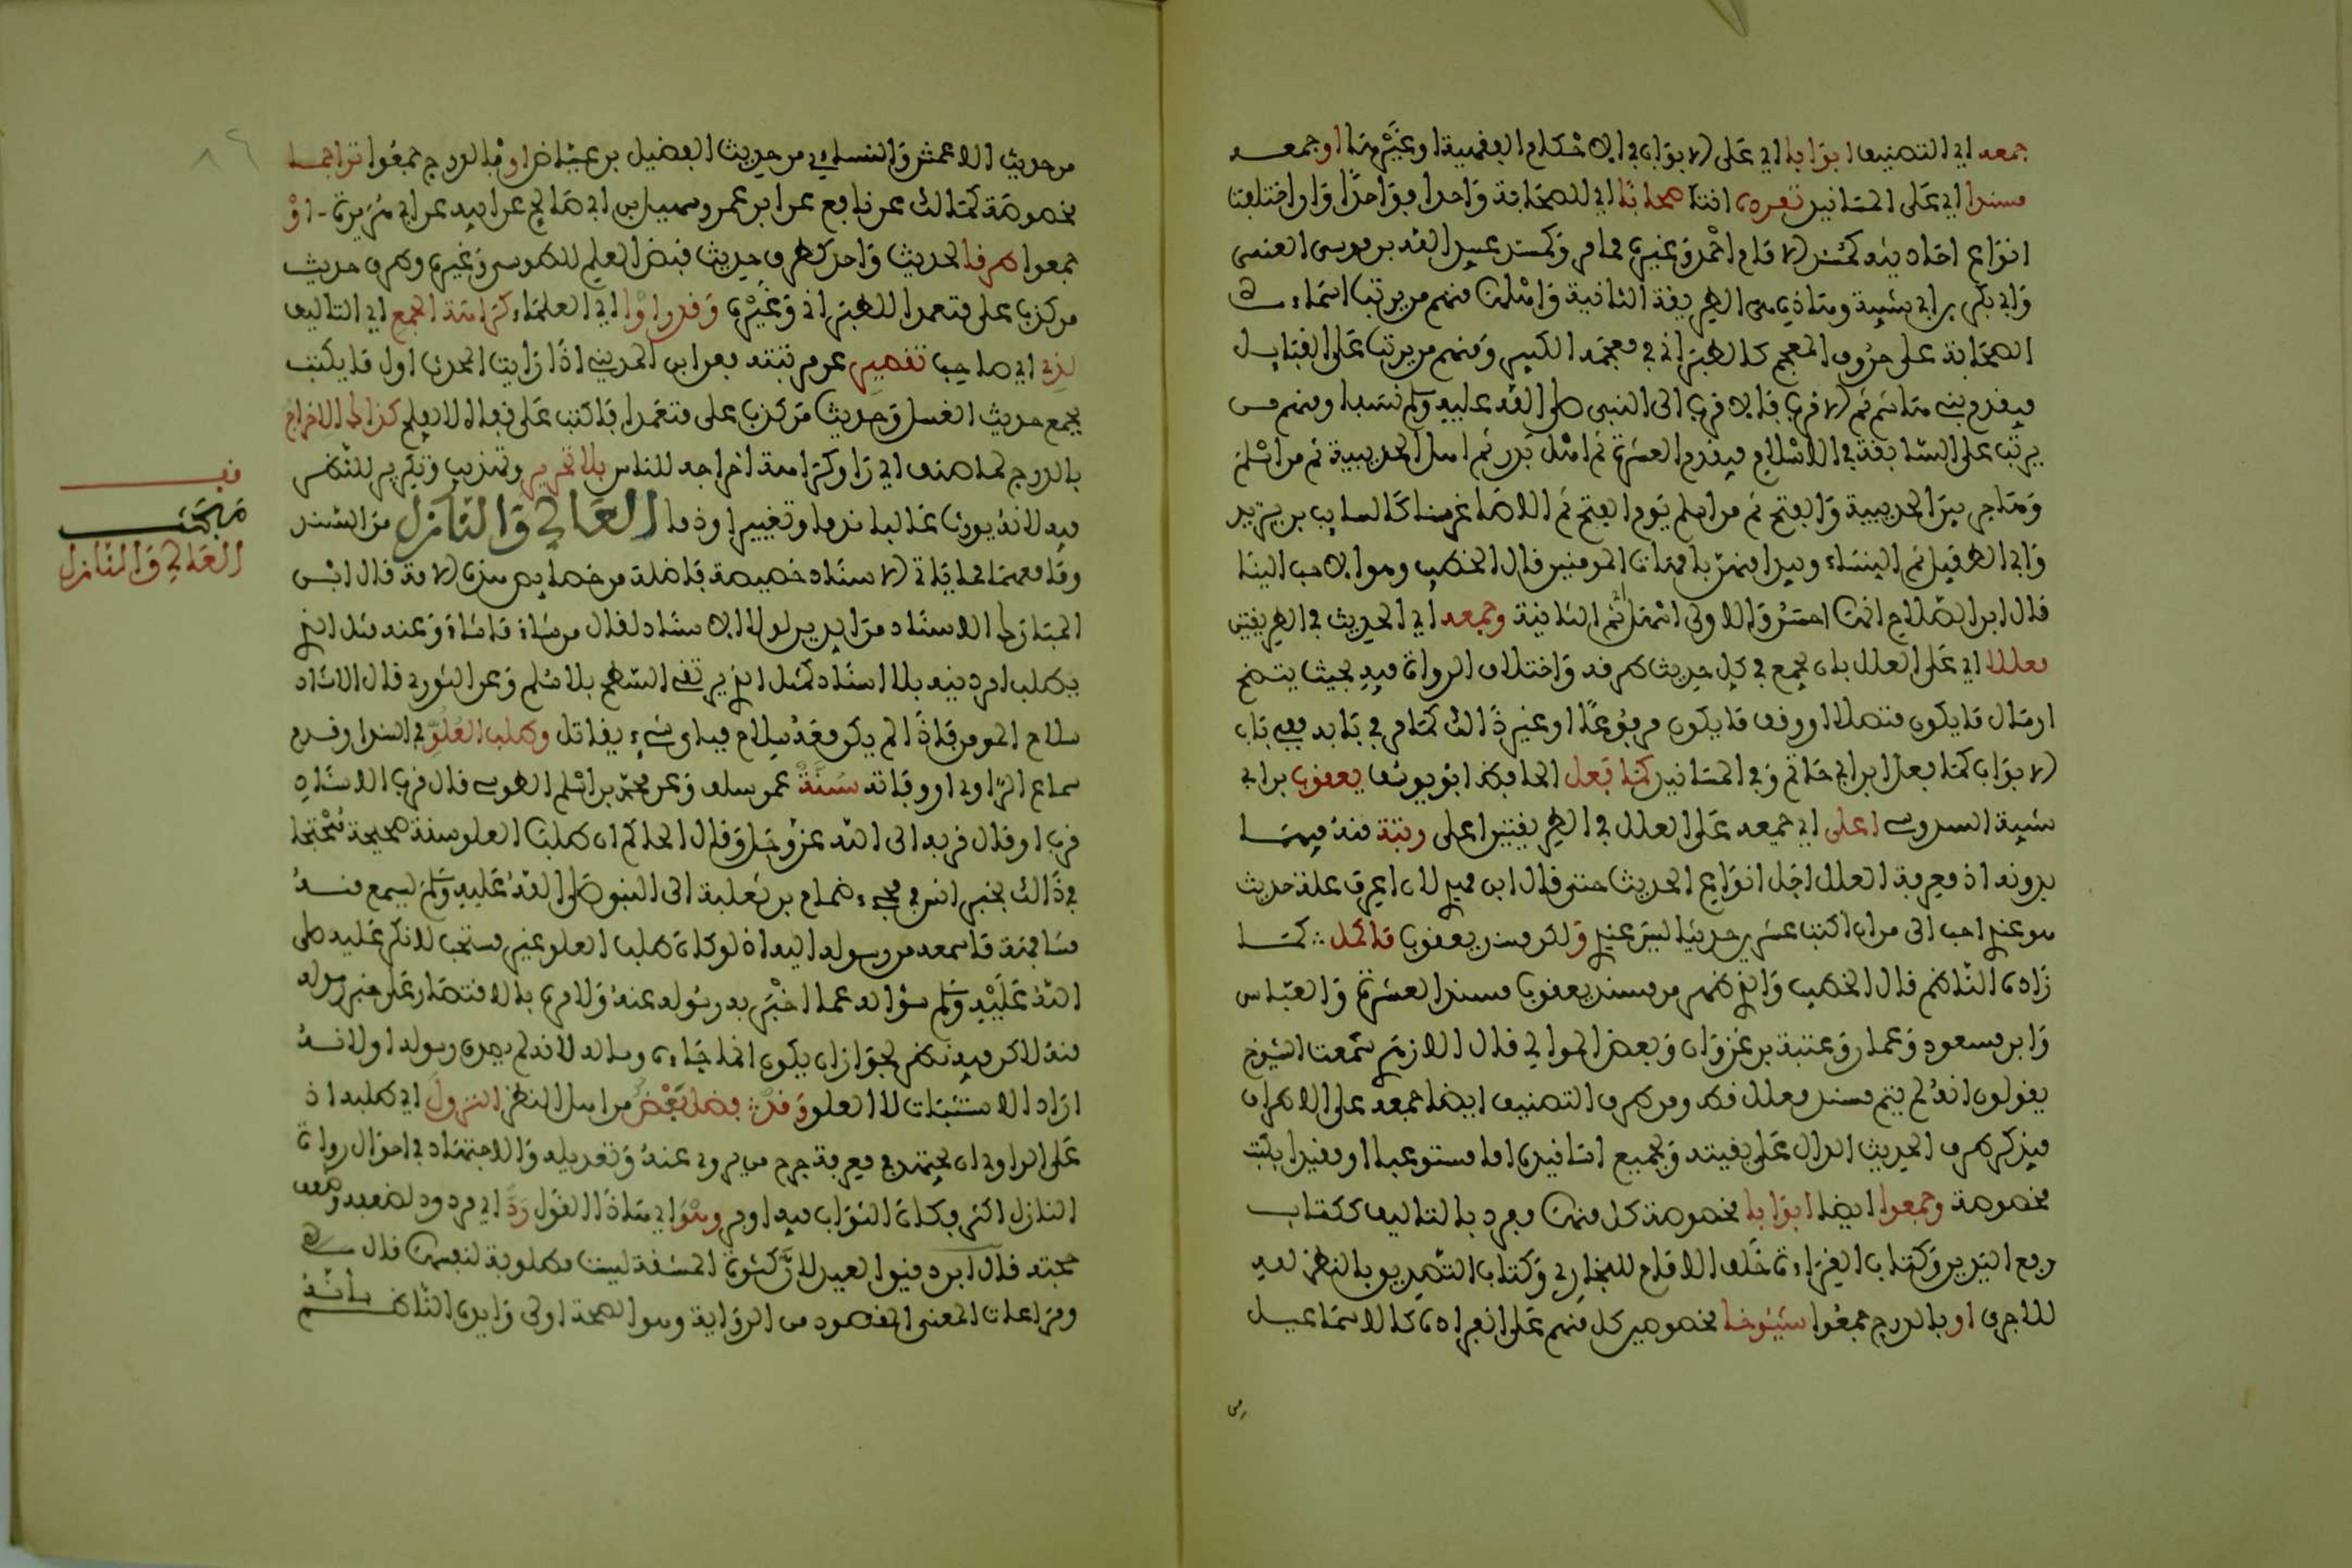 جمعه اي التصنيف ابوابا اي على الابواب في الاحكام الفقهية او غيرها او جمعه
مسندا اي على المسانيد تفرده انت صحابا اي للصحابة واحدا فواحدا وان اختلفت
انواع احاديثه كمسند الامام احمد وغيره مما مر وكمسند عبيد الله بن موسى العبسي
وابي بكر بن ابي شيبة وهاذه هي الطريقة الثانية واهلها منهم من يرتب اسماء
الصحابة على حروف المعجم كالطبراني في معجمه الكبير ومنهم من يرتب على القبايل
فيقدم بني هاشم ثم الاقرب فالاقرب الى النبي صلى الله عليه وسلم نسبا ومنهم من
يرتب على السابقة في الاسلام فيقدم العشرة ثم اهل بدر ثم اهل الحديبية ثم من اسلم
وهاجر بين الحديبية والفتح ثم من اسلم يوم الفتح ثم الاصاغر سنا كالسايب بن يزيد
وابي الطفيل ثم النساء ويبدا منهن بامهات المومنين قال الخطيب وهو الاحب الينا
قال ابن الصلاح انها احسن والاولى اسهل ثم الثانية وجمعه اي الحديث في الطريقتين
معللا اي على العلل بان يجمع في كل حديث طرقه واختلاف الرواة فيه بحيث يتضح
ارسال ما يكون متصلا او وقف ما يكون مرفوعا او غير ذالك كما مر في بابه ففي باب
الابواب كما فعل ابن ابي حاتم وفي المسانيد كما فعل الحافظ ابو يوسف يعقوب بن ابي
شيبة السدوسي اعلى اي جمعه على العلل في الطريقتين اعلى رتبة منه فيهما
بدونه اذ معرفة العلل اجل انواع الحديث حتى قال ابن مهدي لان اعرف علة حديث
هو عندي احب الى من ان اكتب عشرين حديثا ليس عندي ولكن مسند يعقوب ما كمل كما
زاده الناظم قال الخطيب والذي ظهر من مسند يعقوب مسند العشرة والعباس
وابن مسعود وعمار وعتبة بن غزوان وبعض الموالي قال الازهري سمعت الشيوخ
يقولون انه لم يتم مسند معلل قط ومن طرق التصنيف ايضا جمعه على الاطراف
فيذكر طرف الحديث الدال على بقيته ويجمع اسانيده اما مستوعبا او مقيدا بكتب
مخصوصة وجمعوا ايضا ابوابا مخصوصة كل منها مفرد بالتاليف ككتاب
رفع اليدين وكتاب القراءة خلف الامام للبخاري وكتاب التصديق بالنظر لله
للاجري او بالدرج جمعوا شيوخا مخصوصين كل منهم على انفراده كالاسماعيلي
من حديث الاعمش والنساءي من حديث الفضيل بن عياض او بالدرج جمعوا تراجما
مخصوصة كمالك عن نافع عن ابن عمر وسهيل بن ابي صالح عن ابيه عن ابي هريرة او
جمعوا طرفا لحديث واحد كطرق حديث قبض العلم للطوسي وغيره وطرق حديث
من كذب علي متعمدا للطبراني وغيره وقد راوا اي العلماء كراهة الجمع اي التاليف
لذي اي صاحب تقصير عن مرتبته فعن ابن المديني اذا رايت الحدث اول ما يكتب
يجمع حديث الغسل وحديث من كذب علي متعمدا فاكتب على قفاه لا يفلح كذا الاخراج
بالدرج لما صنف اي را وكراهة اخراجه للناس بلا تحرير وتهذيب وتكرير للنظر
فيه لانه يورث غالبا ندما وتغييرا وذما العالي والنازل من السند
وما معهما مما ياتي الاسناد خصيصة فاضلة من خصايص هذه الامة قال ابن
المبارك الاسناد من الدين لولا الاسناد لقال من شاء ما شاء وعنه مثل الذي
يطلب امر دينه بلا اسناد كمثل الذي يرتقي السطح بلا سلم وعن الثوري قال الاسناد
سلاح المومن فاذا لم يكن معه سلاح فباي شيء يقاتل وطلب العلو في السند او قدم
سماع الراوي او وفاته سنة عمن سلف وعن محمد بن اسلم الطوسي قال قرب الاسناد
قرب او قال قربه الى الله عز وجل وقال الحاكم ان طلب العلو سنة صحيحة محتجا
في ذالك بخبر انس في مجيء ضمام بن ثعلبة الى النبي صلى الله عليه وسلم ليسمع منه
مشافهة ما سمعه من رسوله اليه اذ لو كان طلب العلو غير مستحب لانكر عليه صلى
الله عليه وسلم سؤاله عما اخبره به رسوله عنه ولامره بالاقتصار على خبر رسوله
عنه لاكن فيه نظر لجواز ان يكون انما جاءه وساله لانه لم يصدق رسوله او لانه
اراد الاستثبات لا العلو وقد فضل بعض من اهل النظر النزول اي طلبه اذ
على الراوي ان يجتهد في معرفة جرح من يروي عنه وتعديله والاجتهاد في احوال رواة
النازل اكثر فكان الثواب فيه اوفر وهو اي هاذا القول رد اي مردود لضعفه وضعف
حجته قال ابن دقيق العيد لان كثرة المشقة ليست مطلوبة لنفسها قال
ومراعات المعنى المقصود من الرواية وهو الصحة اولى وايده الناظم بانه
قف
مبحث
العالي والنازل